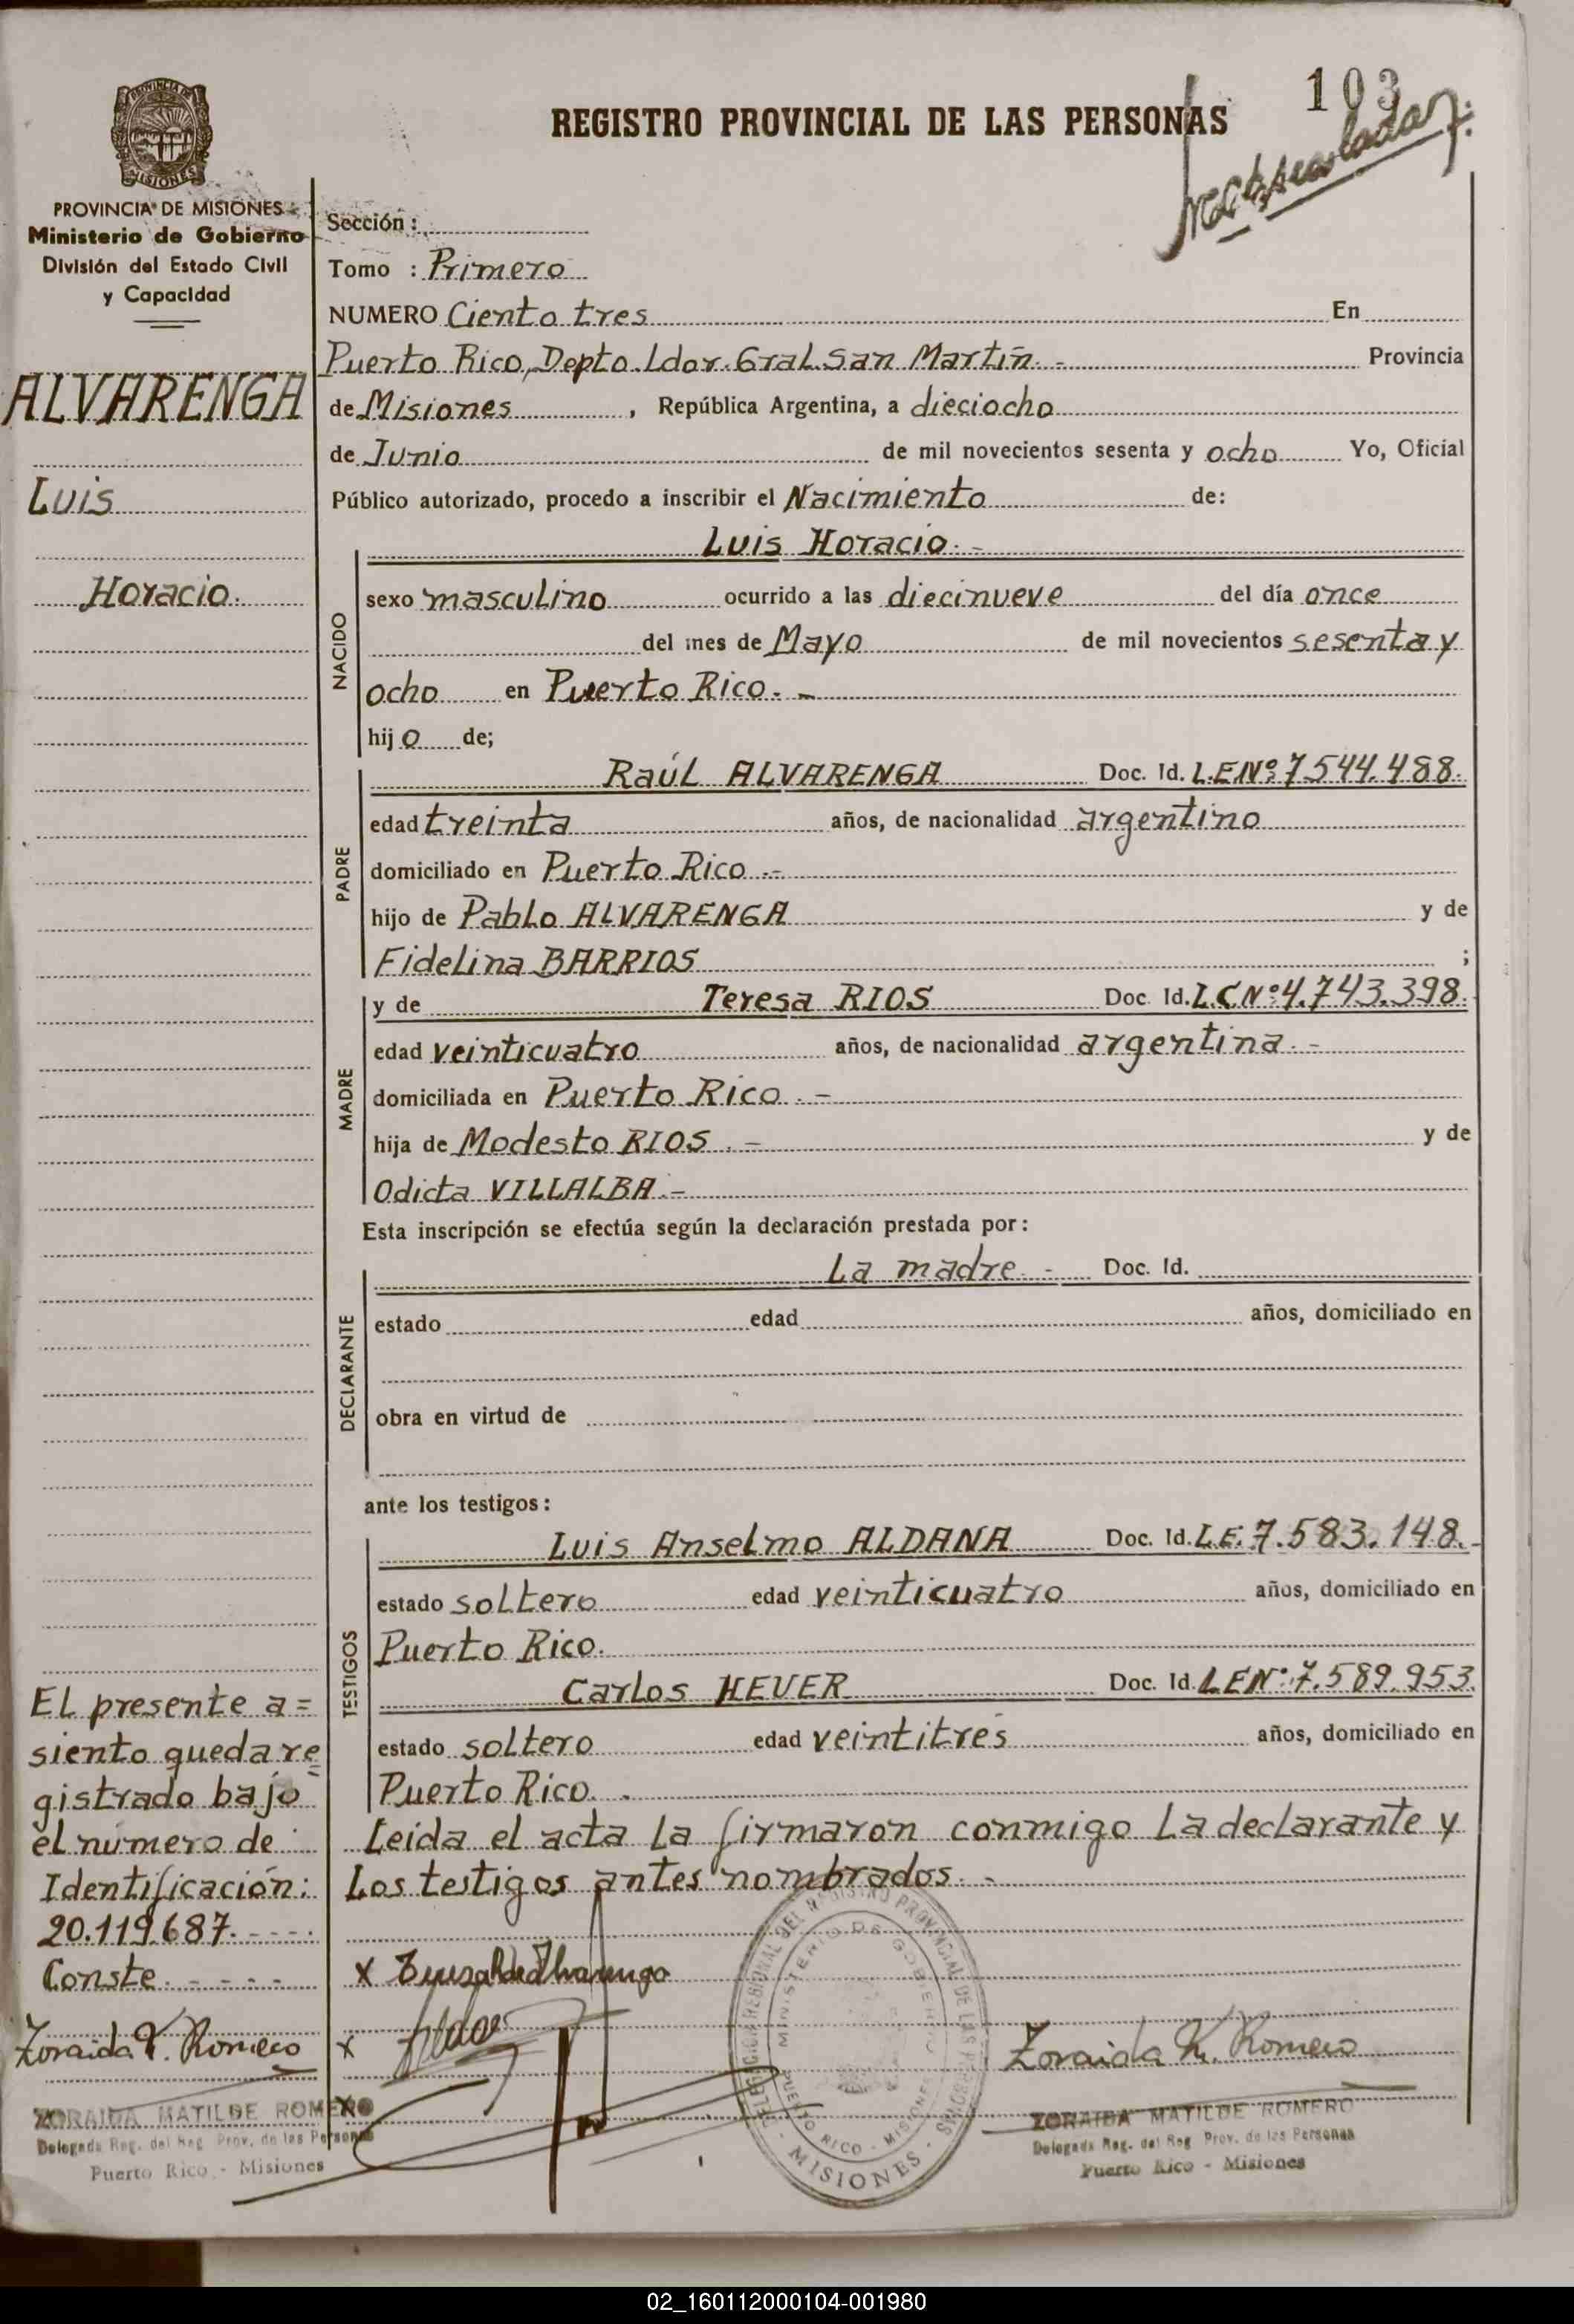 103
REGISTRO PROVINCIAL DE LAS PERSONAS
PROVINCIA DE MISIONES
PROVINCIA DE MISIONES
Ministerio de Gobierno
División del Estado Civil
y Capacidad
ALVARENGA
Luis
Horacio.
Sección:
Tomo : Primero
NUMERO Ciento tres En
Puerto Rico, Depto. Ldor. Gral. San Martín. - Provincia
de Misiones , República Argentina, a dieciocho
de Junio de mil novecientos sesenta y ocho Yo, Oficial
Público autorizado, procedo a inscribir el Nacimiento de:
Luis Horacio. -
NACIDO
sexo masculino ocurrido a las diecinueve del día once
del mes de Mayo de mil novecientos sesenta y
ocho en Puerto Rico. -
hijo de;
PADRE
Raúl ALVARENGA Doc. Id. L.E.Nº: 7.544.488.
edad treinta años, de nacionalidad argentino
domiciliado en Puerto Rico .-
hijo de Pablo ALVARENGA y de
Fidelina BARRIOS ;
MADRE
y de Teresa RIOS Doc. Id. L.C Nº: 4.743.398.
edad veinticuatro años, de nacionalidad argentina. -
domiciliada en Puerto Rico . -
hija de Modesto RIOS . - y de
Odicta VILLALBA .-
Esta inscripción se efectúa según la declaración prestada por:
DECLARANTE
La madre. - Doc. Id.
estado edad años, domiciliado en
obra en virtud de
ante los testigos:
TESTIGOS
Luis Anselmo ALDANA Doc. Id. L.E. 7.583.148.-
estado soltero edad veinticuatro años, domiciliado en
Puerto Rico.
Carlos HEVER Doc. Id. L.E Nº: 7.589.953.
estado soltero edad veintitres años, domiciliado en
Puerto Rico. .
Leida el acta la firmaron conmigo la declarante y
Los testigos antes nombrados. -
El presente a=
siento queda re=
gistrado bajo
el número de
Identificación:
20.119.687. - - - -
Conste. - - - - -
x
x
x
Zoraida M. Romero
Zoraida M. Romero
ZORAIDA MATILDE ROMERO
Delegada Reg. del Reg. Prov. de las Personas
Puerto Rico - Misiones
DELEGACION REGIONAL DEL REGISTRO PROVINCIAL DE LAS PERSONAS - MISIONES -
MINISTERIO DE GOBIERNO
PUERTO RICO - MISIONES
ZORAIDA MATILDE ROMERO
Delegada Reg. del Reg. Prov. de las Personas
Puerto Rico - Misiones
02_160112000104-001980